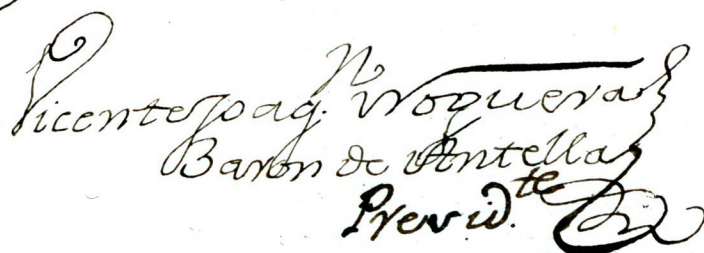 Vicente Joaq.n Noguera
Baron de Antella
Presid.te